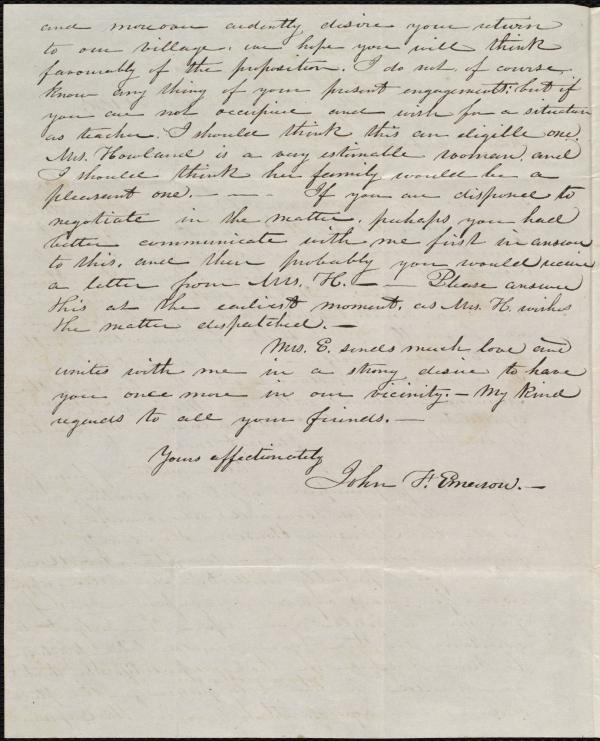 and moreover ardently desire your return
to our village, we hope you will think
favourably of the proposition. I do not, of course,
know any thing of your present engagements; but if
you are not occupied and wish for a situation
as teacher, I should think this an eligible one.
Mrs. Howland is a very estimable woman, and
I should think her family would be a
pleasant one. — — — If you are disposed to
negotiate in the matter, perhaps you had
better communicate with me first in answer
to this, and then probably you would receive
a letter from Mrs. H. — — Please answer
this at the earliest moment, as Mrs. H. wishes
the matter dispatched. —
Mrs. E. sends much love and
unites with me in a strong desire to have
you once more in our vicinity. — My kind
regards to all your friends. —
Yours affectionately
John F. Emerson. —